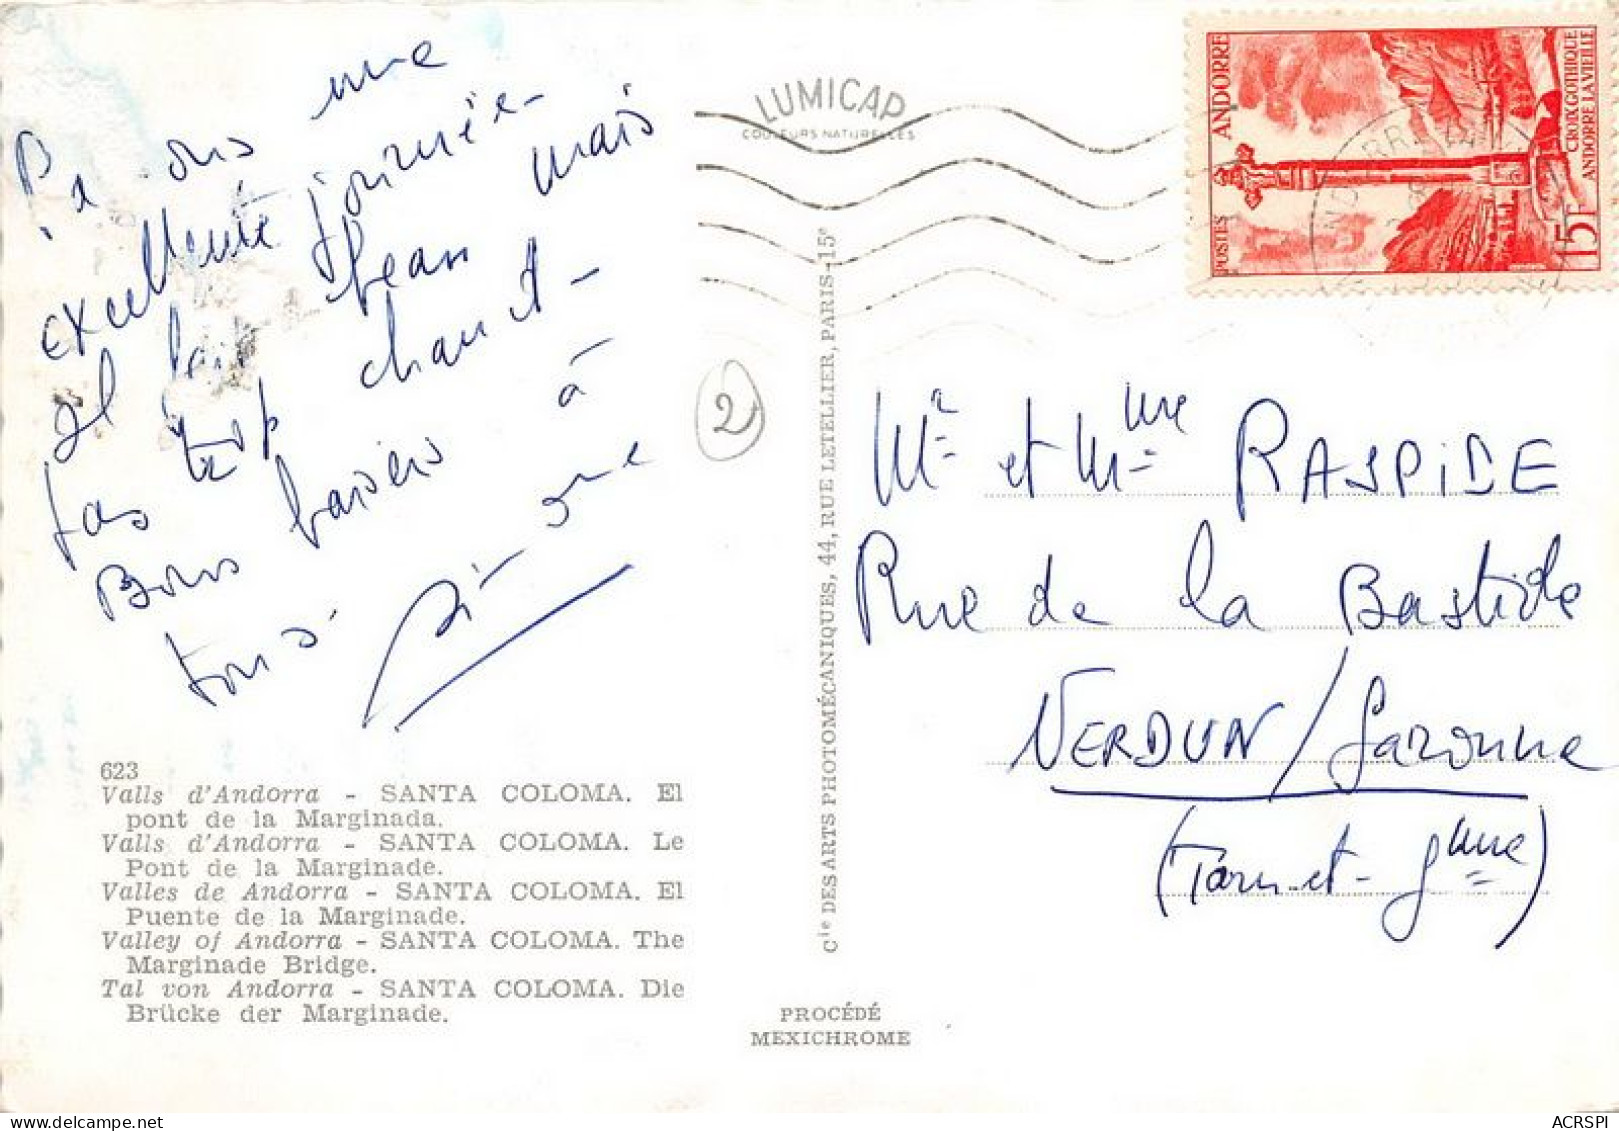 une
Passons
excellente journée -
Il fait beau mais
pas trop chaud -
Bons baisers à
tous.
Simone
623
Valls d'Andorra - SANTA COLOMA. El
pont de la Marginada.
Valls d'Andorra - SANTA COLOMA. Le
Pont de la Marginade.
Valles de Andorra - SANTA COLOMA. El
Puente de la Marginade.
Valley of Andorra - SANTA COLOMA. The
Marginade Bridge.
Tal von Andorra - SANTA COLOMA. Die
Brücke der Marginade.
LUMICAP
COULEURS NATURELLES
2
Cie DES ARTS PHOTOMÉCANIQUES, 44, RUE LETELLIER, PARIS-15e
PROCÉDÉ
MEXICHROME
POSTES ANDORRE
CROIX GOTHIQUE
ANDORRE LA VIEILLE
15F
Mr et Mme RASPIDE
Rue de la Bastide
VERDUN / Garonne
(Tarn-et-Gnne)
ACRSPI